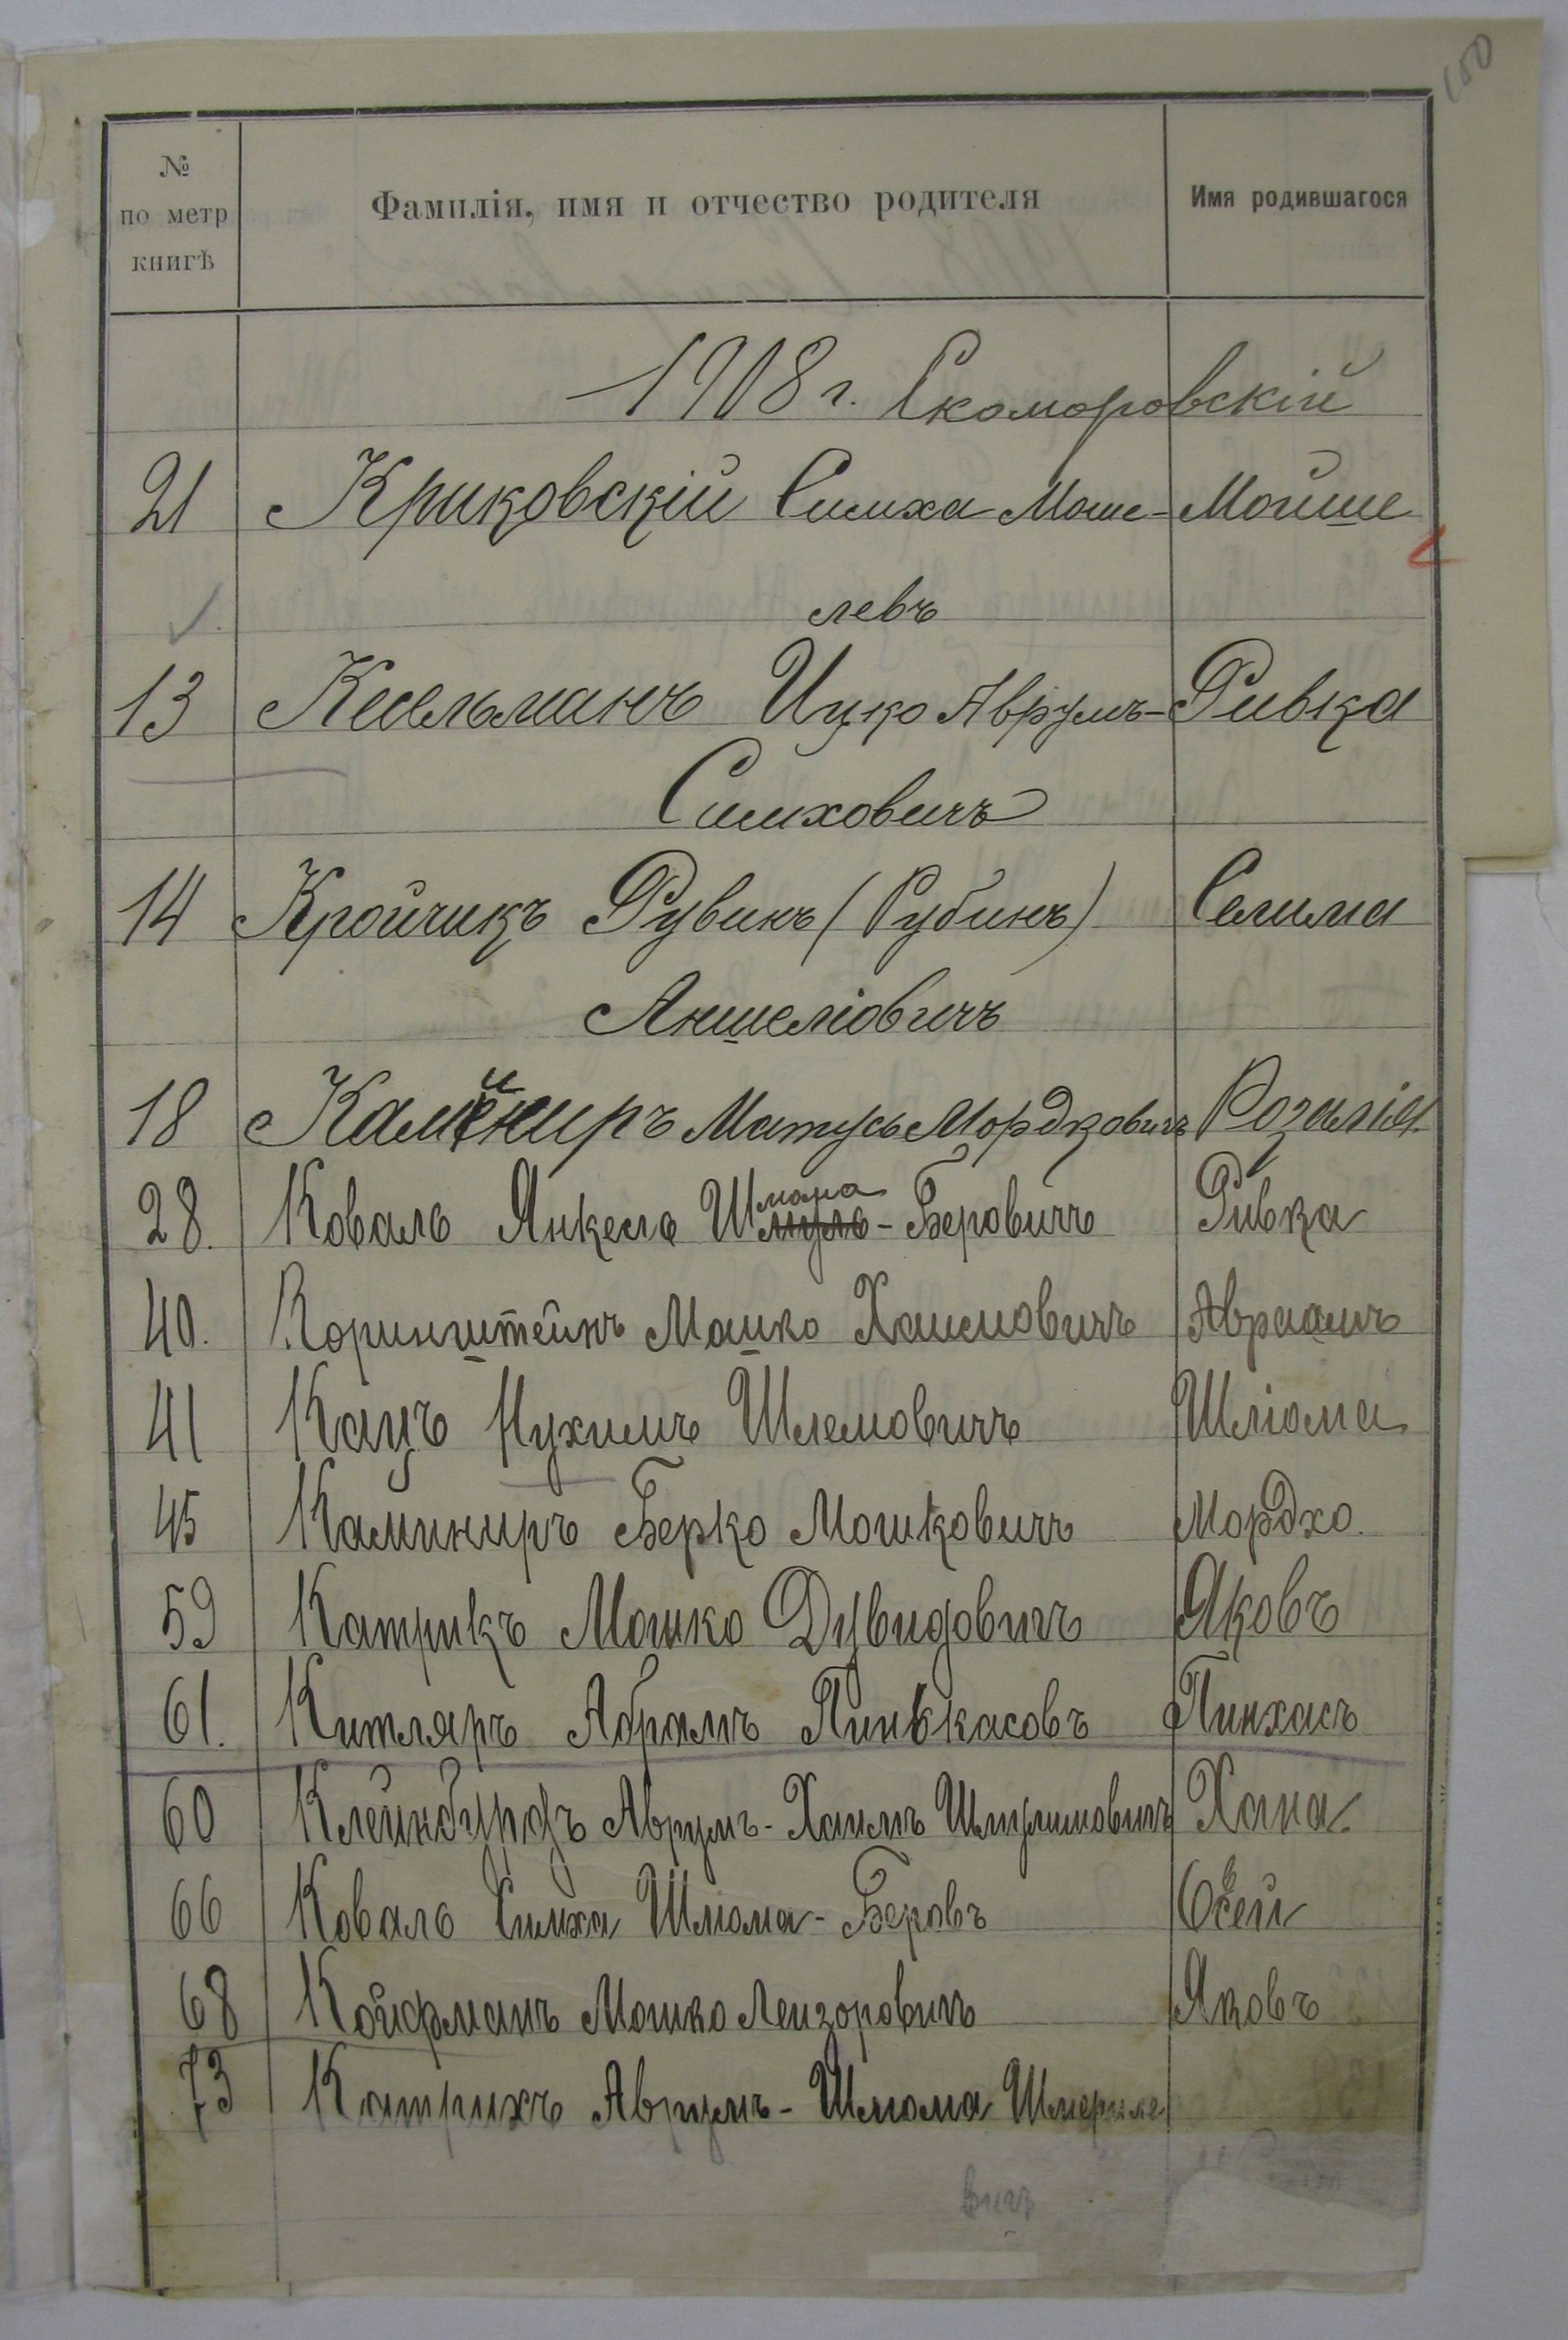 150
№ по метр книгѣ Фамилія, имя и отчество родителя Имя родившагося
1908 г. Скоморовскій
21 Криковскій Симха Моше- Мойше
левъ
13 Кесельманъ Ицко Аврумъ- Ривка
Симховичъ
14 Кройчикъ Рувинъ (Рубинъ) Селима
Аншеліовичъ
18 Каминиръ Матусь Мордковичъ Розалія
28. Коваль Янкель Шмара-Беровичъ Ривка
40. Коринштейнъ Мошко Хаимовичъ Авраамъ
41 Кацъ Нухимъ Шлемовичъ Шліома
45 Каминиръ Берко Мошковичъ Мордхо.
59 Катрикъ Мошко Дувидовичъ Яковъ
61. Китляръ Абрамъ Пинькасовъ Пинхасъ
60 Клейнбурдъ Аврумъ-Хаимъ Шмулимовичъ Хана
66 Коваль Симха Шмома-Беровъ
68 Койфманъ Мошко Лейзоровичъ Яковъ
73 Катрихъ Аврумъ-Шмома
вичъ